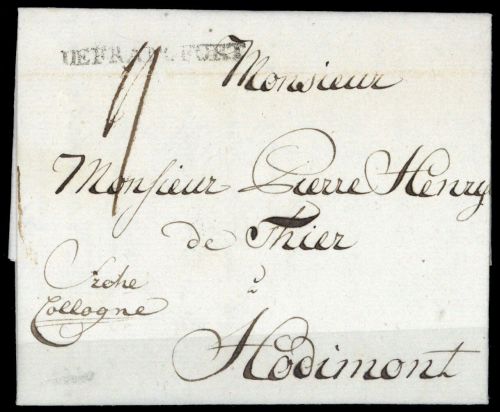 DE FRANCFORT
Monsieur
Monsieur Pierre Henry
de Thier
à
Hodimont
Collogne